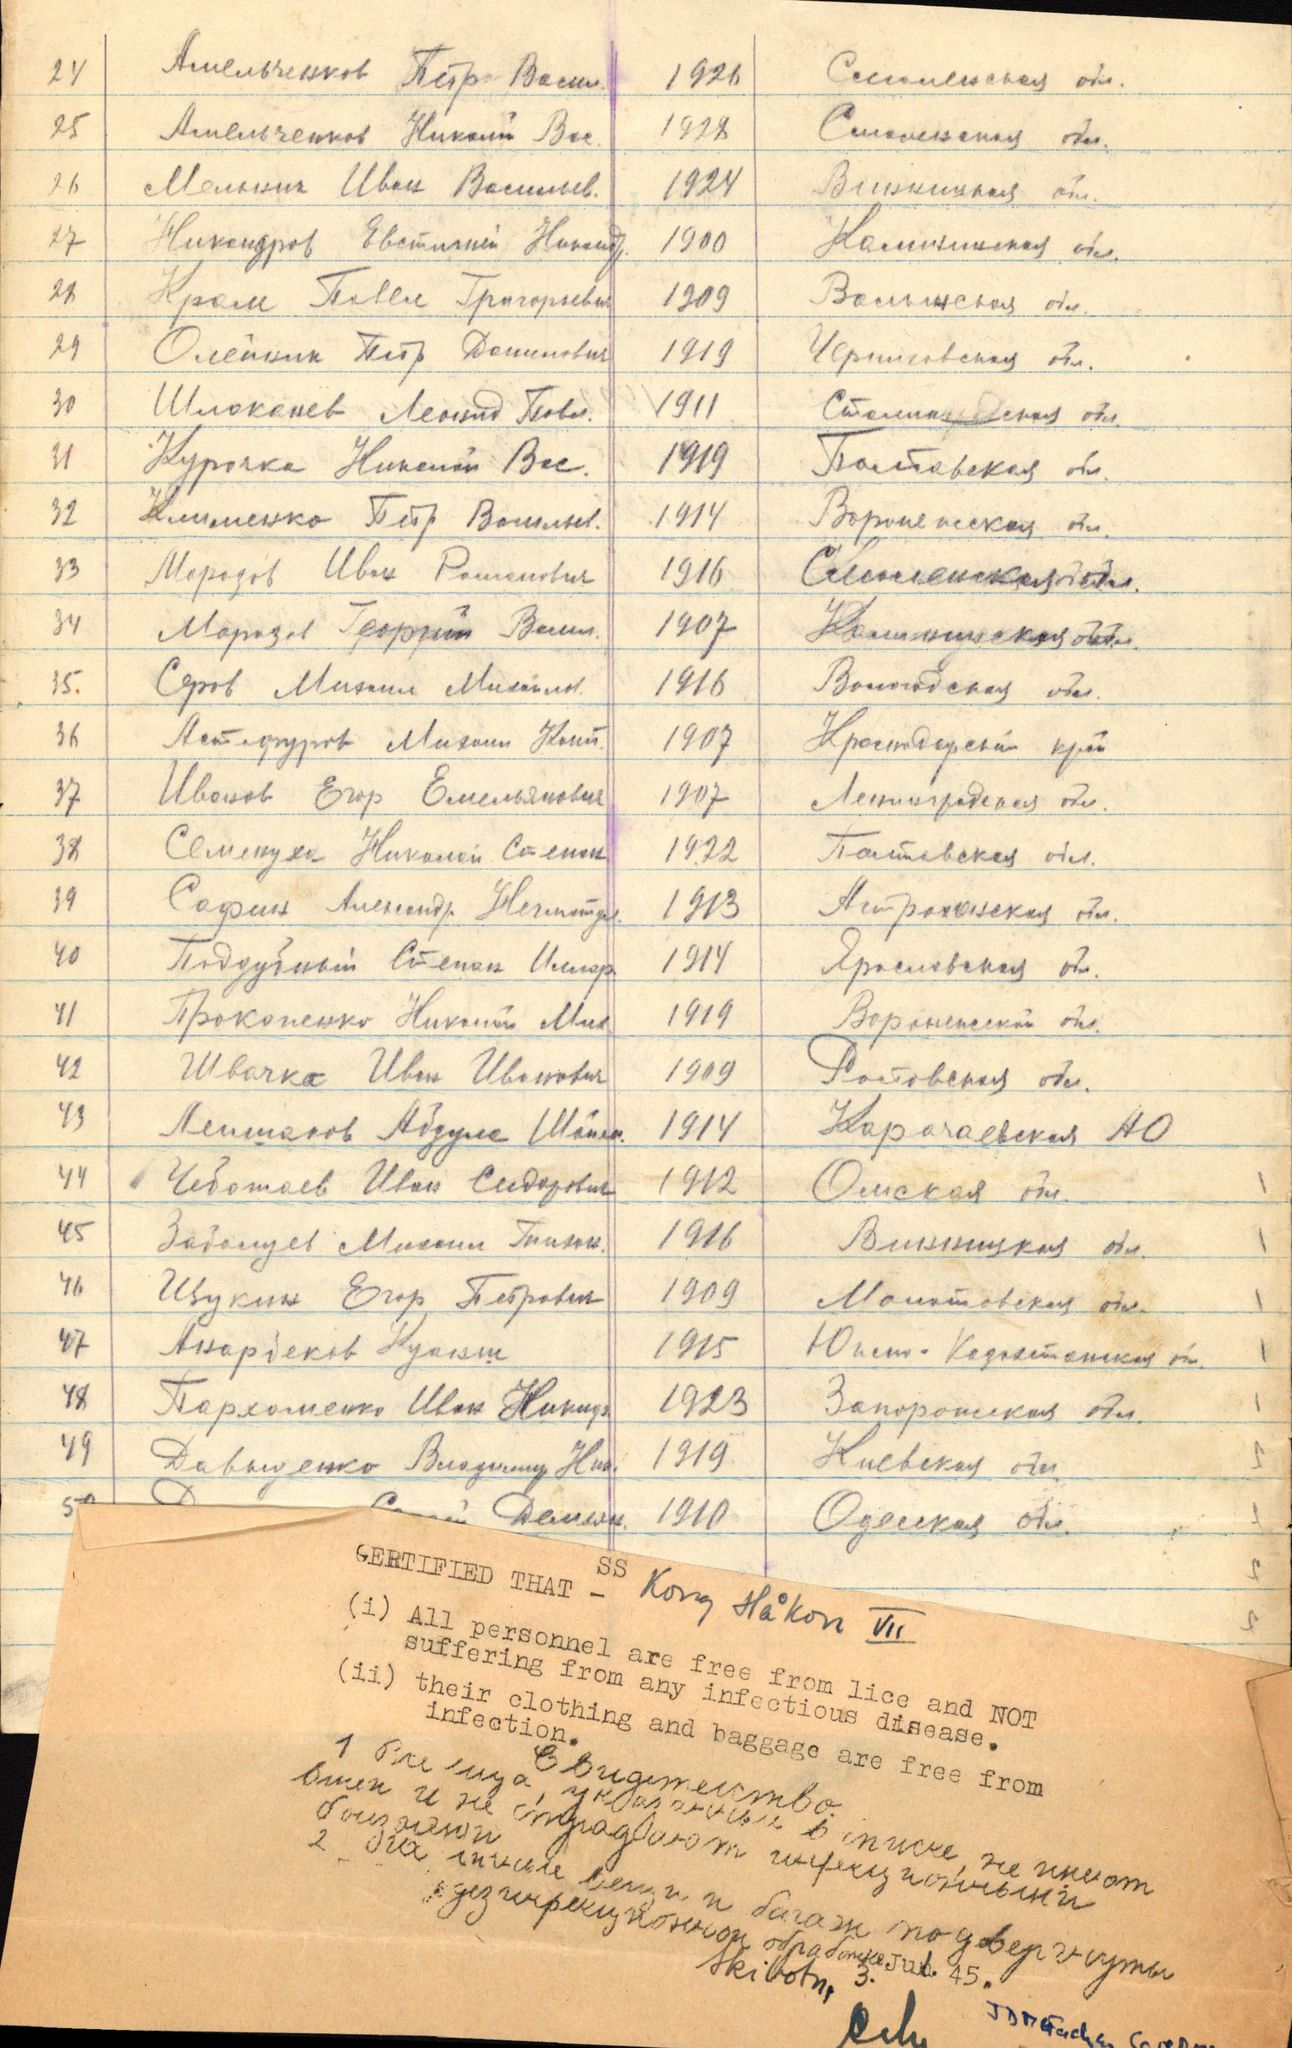 24 Амельченков Петр Васил. 1926 Смоленская обл.
25 Амельченков Николай Вас. 1928 Смоленская обл.
26 Мельник Иван Васильев. 1924 Винницкая обл.
27 Никандров Евстигней Никандр. 1900 Калининская обл.
28 Крам Павел Григорьевич 1909 Волынская обл.
29 Олейник Петр Данилович 1919 Черниговская обл.
30 Шлаканев Леонид Павл. 1911 Сталинская обл.
31 Курочка Николай Вас. 1919 Полтавская обл.
32 Клименко Петр Васильев. 1914 Воронежская обл.
33 Морозов Иван Романович 1916 Смоленская обл.
34 Морозов Георгий Васил. 1907 Калининская обл.
35. Серов Михаил Михайлов. 1916 Вологодская обл.
36 Михаил 1907 Краснодарский край
37 Иванов Егор Емельянович 1907 Ленинградская обл.
38 Семенуха Николай Степан 1922 Полтавская обл.
39 Сафин Александр 1913 Астраханская обл.
40 Поддубный Степан Иллар. 1914 Ярославская обл.
41 Прокопенко Николай Мих 1919 Воронежской обл.
42 Швачка Иван Иванович 1909 Ростовская обл.
43 Абдула 1914 Карачаевская АО
44 Чеботаев Иван Сидорович 1912 Омская обл.
45 Заболуев Михаил Тихон. 1916 Винницкая обл.
46 Щукин Егор Петрович 1909 Молотовская обл.
47 Анарбеков Куаныш 1915 Южно-Казахстанская обл.
48 Пархоменко Иван Никиф 1923 Запорожская обл.
49 Давыденко Владимир Ник. 1919 Киевская обл.
50 Демьян. 1910 Одесская обл.
CERTIFIED THAT - SS Kong Håkon VII
(i) All personnel are free from lice and NOT
suffering from any infectious disease.
(ii) their clothing and baggage are free from
infection.
Свидетельство
1 Все лица, указанные в списке, не имеют
вшей и не страдают инфекционными
болезнями
2 Все личные вещи и багаж подвергнуты
дезинфекционной обработке
Skibotn, 3. Jul. 45.